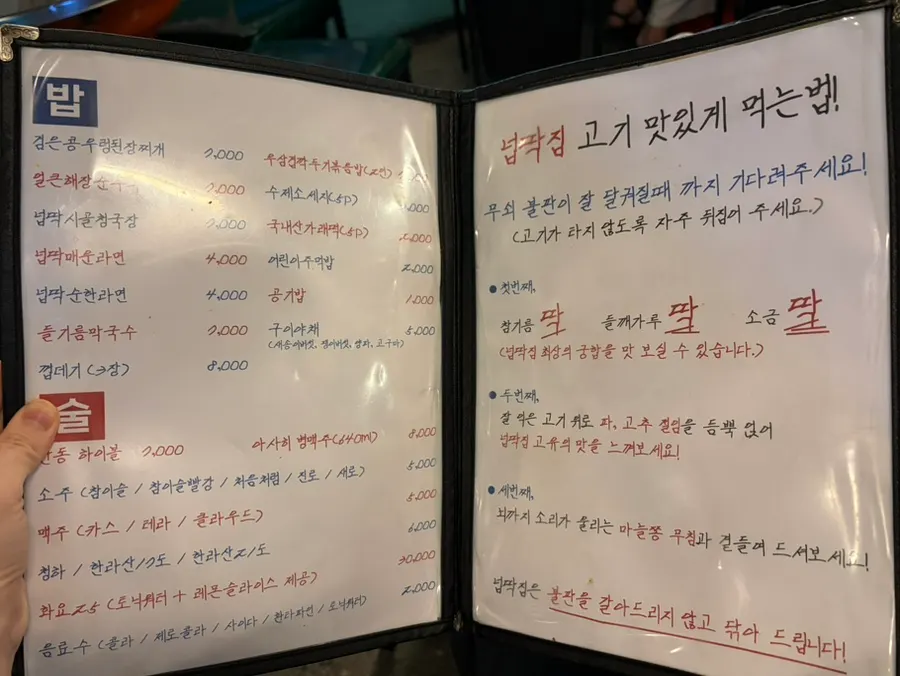 밥
검은콩우렁된장찌개 7,000
얼큰해장순두부 7,000
넙딱시골청국장 7,000
넙딱매운라면 4,000
넙딱순한라면 4,000
들기름막국수 7,000
껍데기 (3장) 8,000
우삼겹깍두기볶음밥(2인)
수제소세지(5P)
국내산가래떡(5P)
어린이주먹밥 2,000
공기밥 1,000
구이야채 5,000
(새송이버섯, 팽이버섯, 양파, 고구마)
술
안동 하이볼 7,000
아사히 병맥주(640ml) 8,000
소주 (참이슬 / 참이슬빨강 / 처음처럼 / 진로 / 새로) 5,000
맥주 (카스 / 테라 / 클라우드) 5,000
청하 / 한라산17도 / 한라산21도 6,000
화요25 (토닉워터 + 레몬슬라이스 제공) 30,000
음료수 (콜라 / 제로콜라 / 사이다 / 환타파인 / 토닉워터) 2,000
넙딱집 고기 맛있게 먹는법!
무쇠 불판이 잘 달궈질때 까지 기다려주세요!
(고기가 타지 않도록 자주 뒤집어 주세요.)
● 첫번째,
참기름 딱 들깨가루 딱 소금 딱
(넙딱집 최상의 궁합을 맛 보실 수 있습니다.)
● 두번째,
잘 익은 고기 위로 파, 고추 절임을 듬뿍 얹어
넙딱집 고유의 맛을 느껴보세요!
● 세번째,
뇌까지 소리가 울리는 마늘쫑 무침과 곁들여 드셔보세요!
넙딱집은 불판을 갈아드리지 않고 닦아 드립니다!